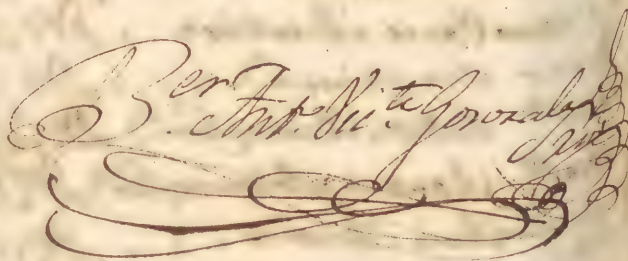 Ber. Antº. Vic.te Gonzalez